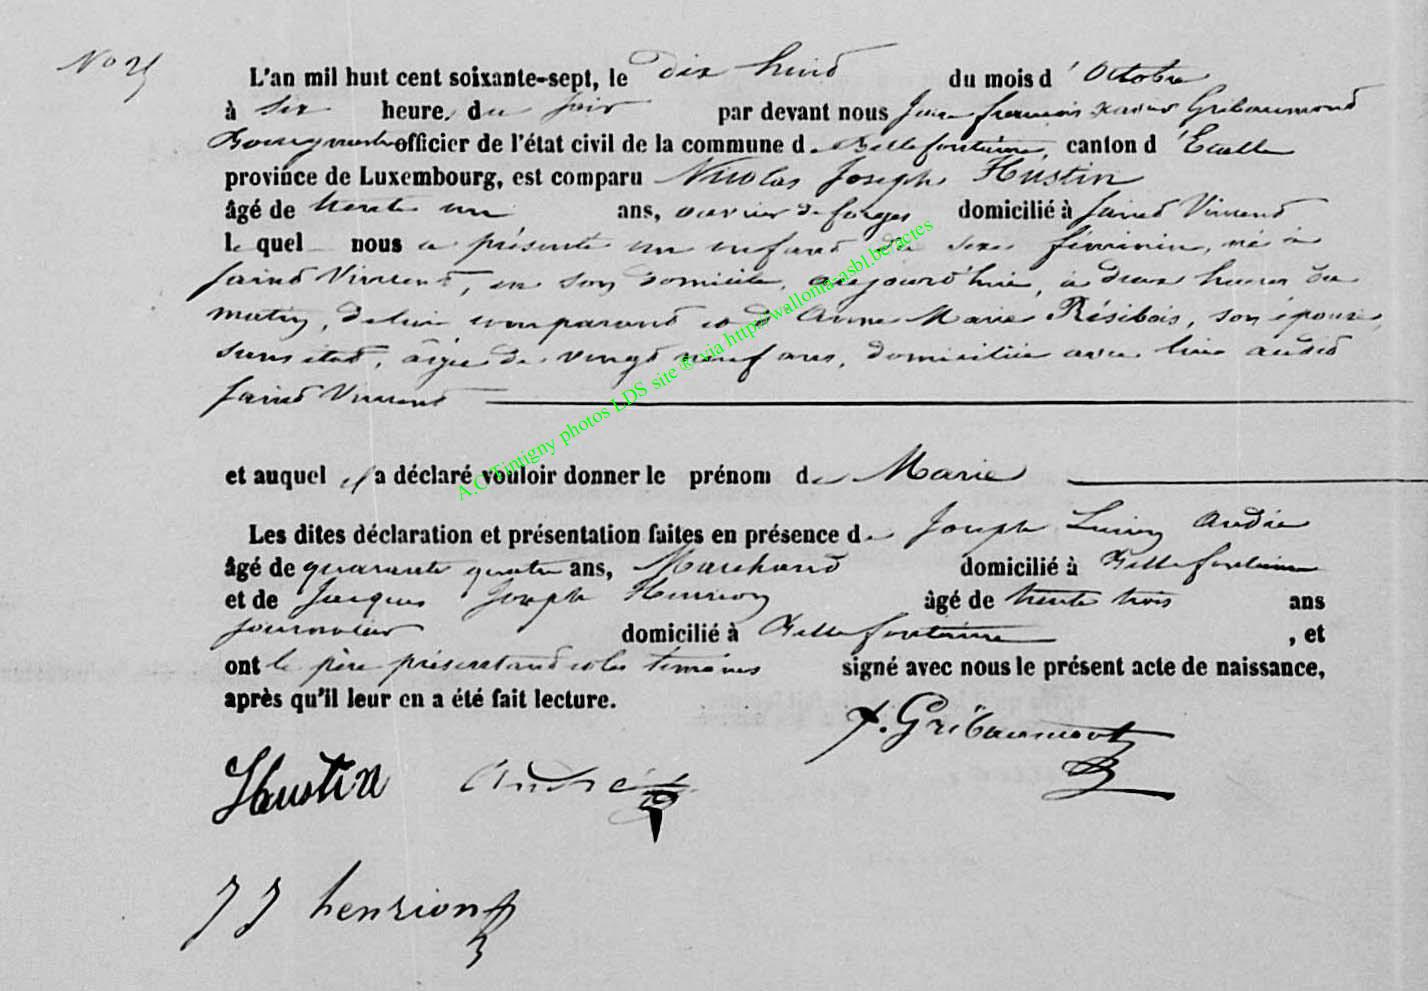 No 25
L'an mil huit cent soixante-sept, le dix huit du mois d'Octobre
à six heure, du soir par devant nous Jean françois xavier Gribaumont
Bourgmestre officier de l'état civil de la commune de Bellefontaine, canton d'Etalle
province de Luxembourg, est comparu Nicolas Joseph Hustin
âgé de trente un ans, ouvrier de forges domicilié à Saint Vincent
lequel nous a présenté un enfant du sexe féminin, né à
Saint Vincent, en son domicile, aujourd'hui, à deux heures du
matin, de lui comparant et d'Anne Marie Résibois, son épouse,
sans état, âgée de vingt neuf ans, domiciliée avec lui audit
Saint Vincent
et auquel il a déclaré vouloir donner le prénom de Marie
Les dites déclaration et présentation faites en présence de Joseph André
âgé de quarante quatre ans, Marchand domicilié à Bellefontaine
et de Jacques Joseph Henrion âgé de trente trois ans
journalier domicilié à Bellefontaine, et
ont le père présentant et les témoins signé avec nous le présent acte de naissance,
après qu'il leur en a été fait lecture.
x. Gribaumont
Hustin André
J J henrion
A.C Tintigny photos LDS site ® via http://wallonia-asbl.be/actes